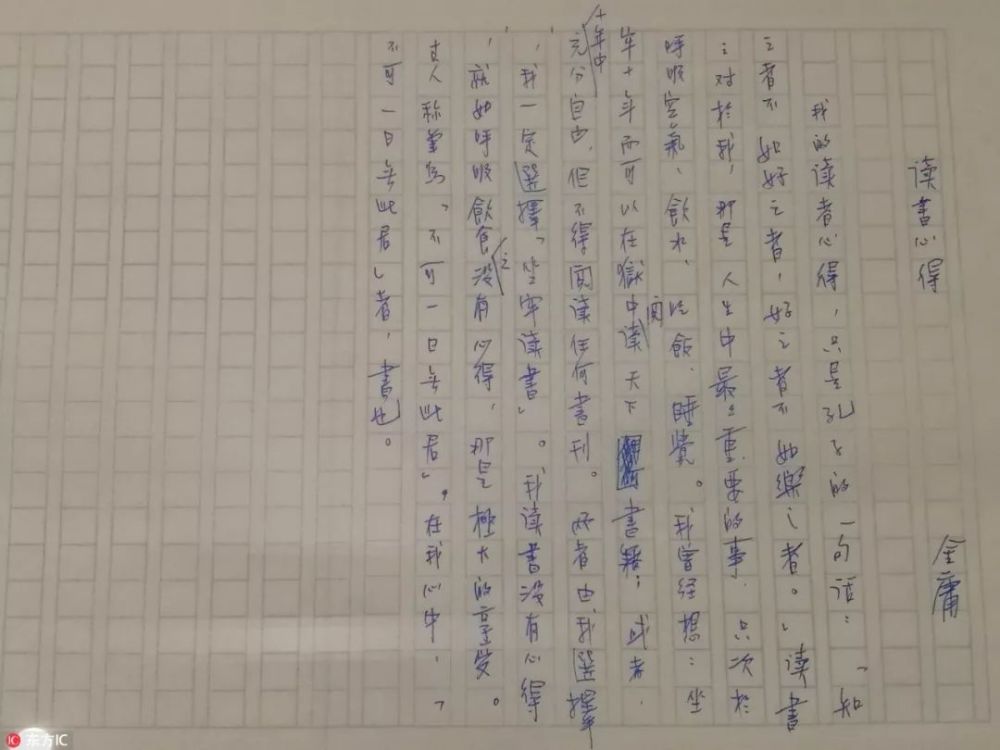 读書心得
金庸
我的读者心得，只是孔子的一句话：「知
之者不如好之者，好之者不如樂之者。」读書
之对於我，那是人生中最重要的事，只次於
呼吸空氣、飲水、吃飯、睡覺。我曾经想：坐
牢十年而可以在獄中閱读天下書籍；或者
十年中充分自由，但不得閱读任何書刊。两者由我選擇
，我一定選擇「坐牢读書」。我读書没有心得
，就如呼吸飲食之没有心得，那是極大的享受。
古人称筆為「不可一日無此君」，在我心中，「
不可一日無此君」者，書也。
东方IC